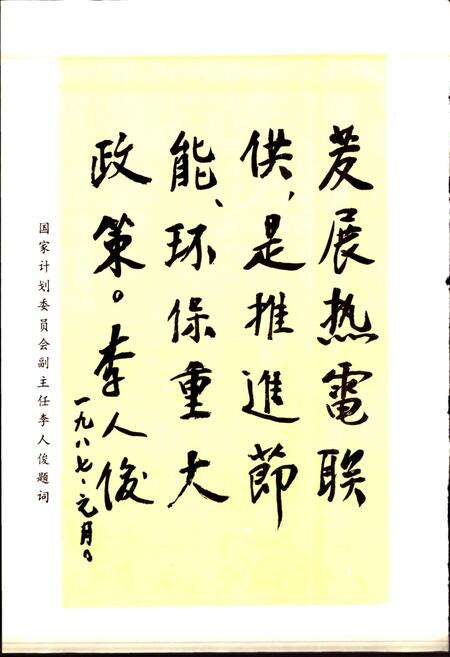 发展热電联
供，是推進節
能、环保重大
政策。李人俊
一九八七、元月。
国家计划委员会副主任李人俊题词